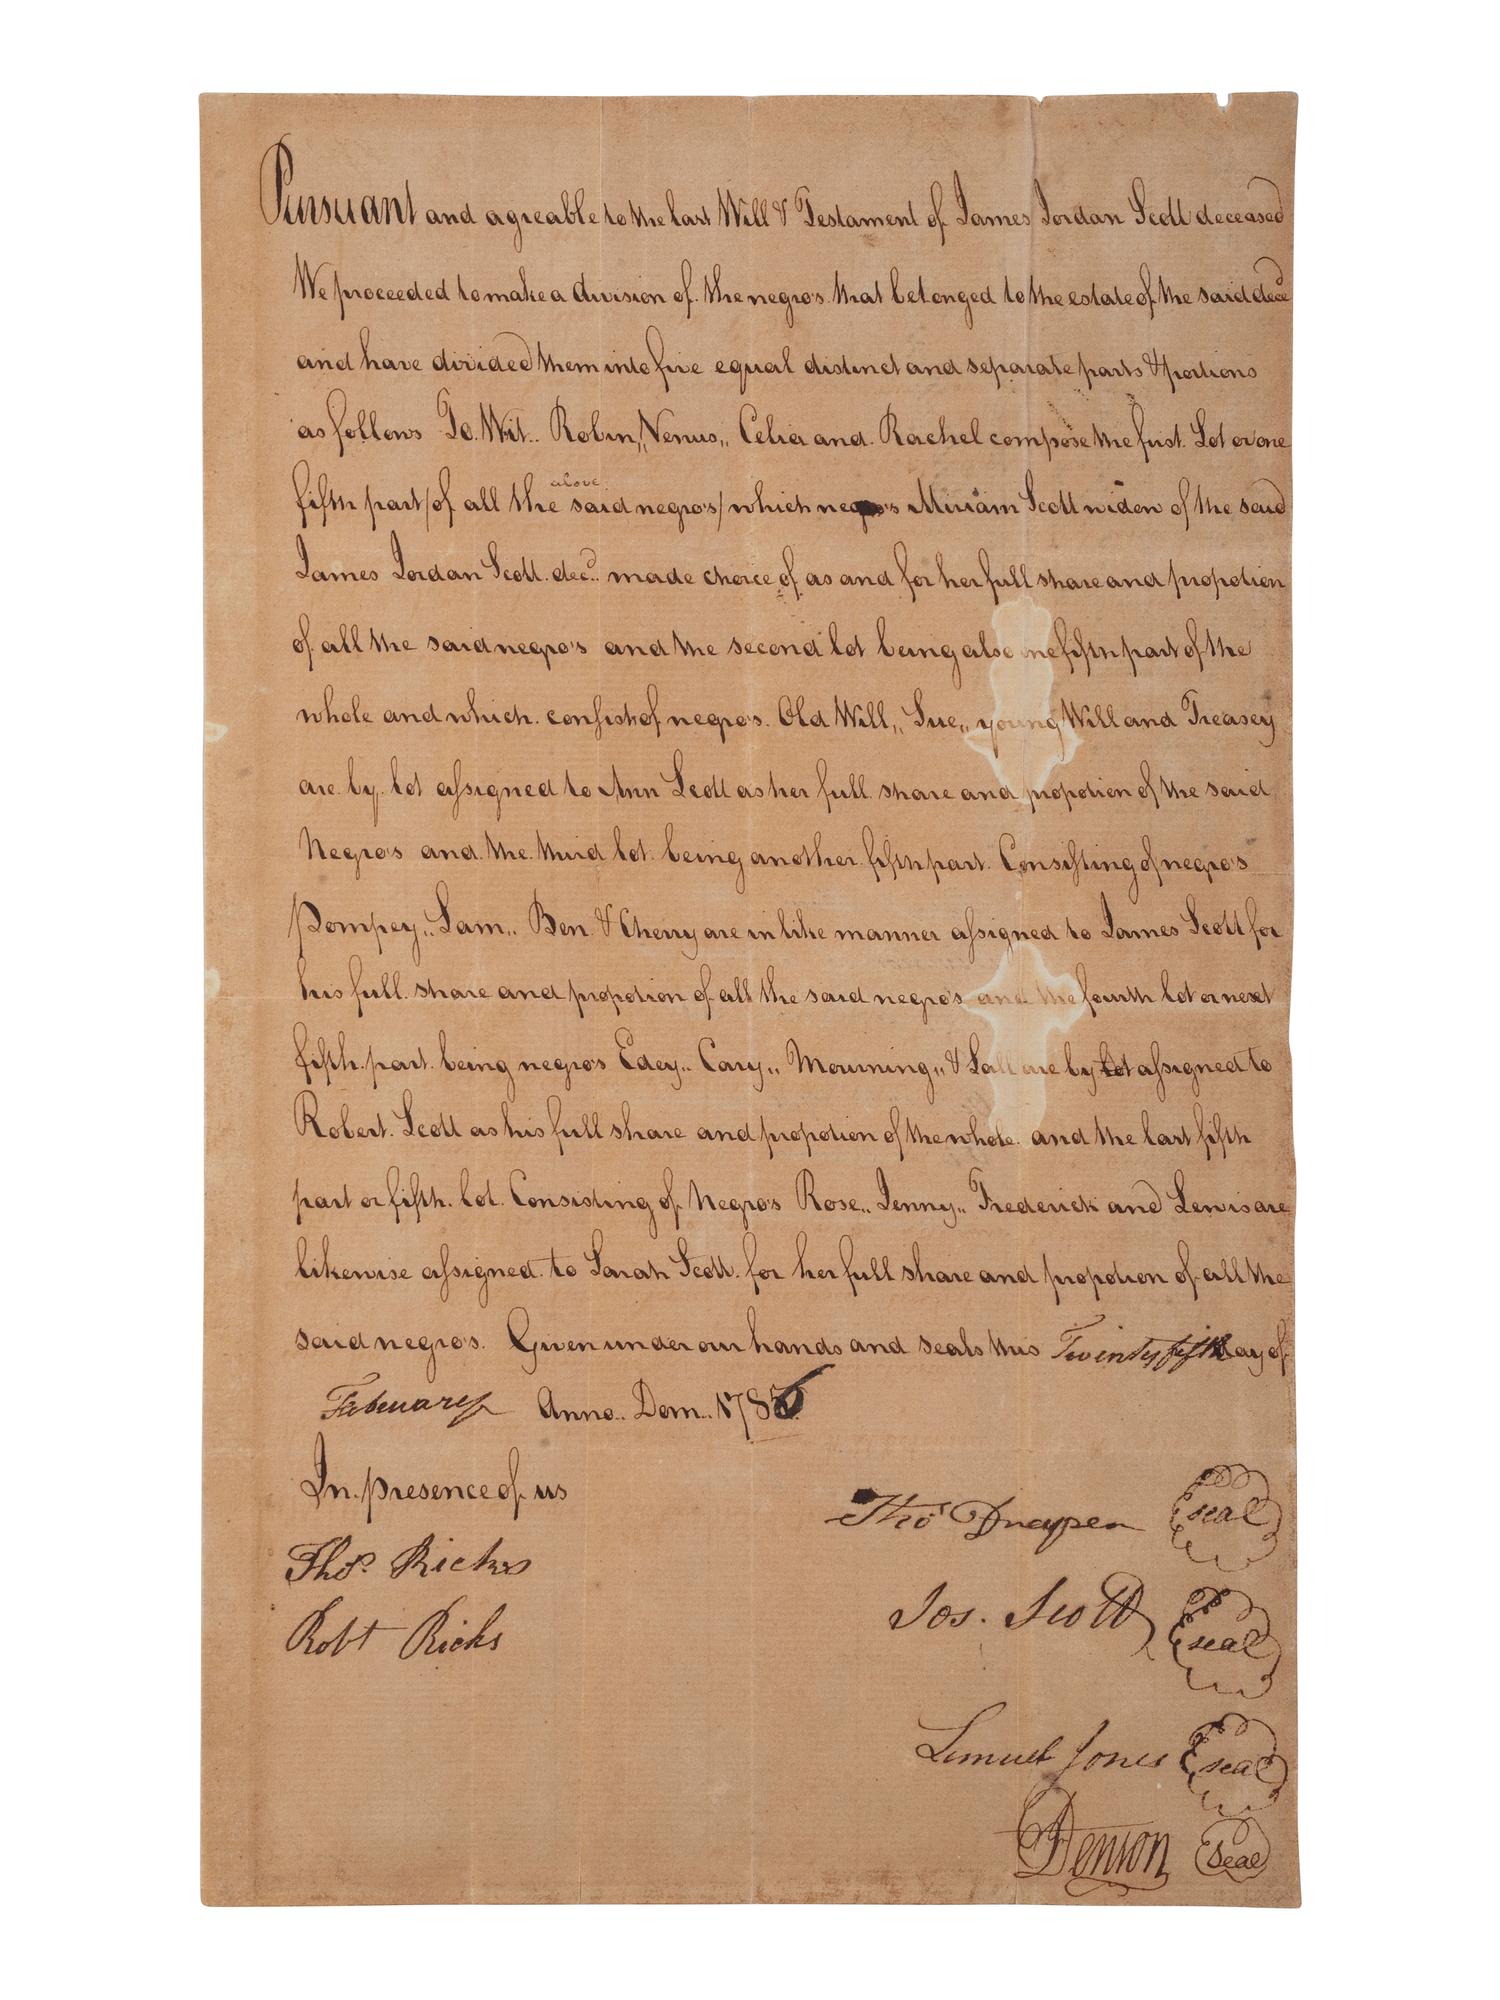 Pursuant and agreable to the last Will & Testament of James Jordan Scott deceased
We proceeded to make a division of the negro's that belonged to the estate of the said decd
and have divided them into five equal distinct and separate parts & portions
as follows To. Wit.. Robin,, Venus,, Celia and Rachel compose the first Lot or one
above
fifth part/of all the said negro's/which negro's Miriam Scott widow of the said
James Jordan Scott decd.. made choice of as and for her full share and propotion
of all the said negro's and the second lot being also one fifth part of the
whole and which consist of negro's. Old Will,, Sue,, young Will and Treasey
are by lot assigned to Ann Scott as her full share and propotion of the said
Negro's and the third lot being another fifth part Consisting of negro's
Pompey,, Sam,, Ben & Cherry are in like manner assigned to James Scott for
his full share and propotion of all the said negro's and the fourth lot or next
fifth part being negro's Edey,, Cary,, Mourning,, & Sall are by lot assigned to
Robert Scott as his full share and propotion of the whole and the last fifth
part or fifth lot Consisting of Negro's Rose,, Jenny,, Frederick and Lewis are
likewise assigned to Sarah Scott for her full share and propotion of all the
said negro's. Given under our hands and seals this Twinty fifth day of
February Anno.. Dom.. 1786
In presence of us
Thos Draper seal
Thos. Ricks
Jos. Scott seal
Robt Ricks
Lemuel Jones seal
Denson seal